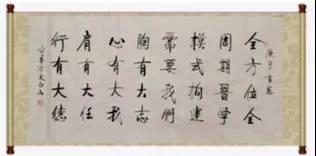 全方位全
周期習學
模式构建
需要我們
胸有大志
心有大我
肩有大任
行有大德